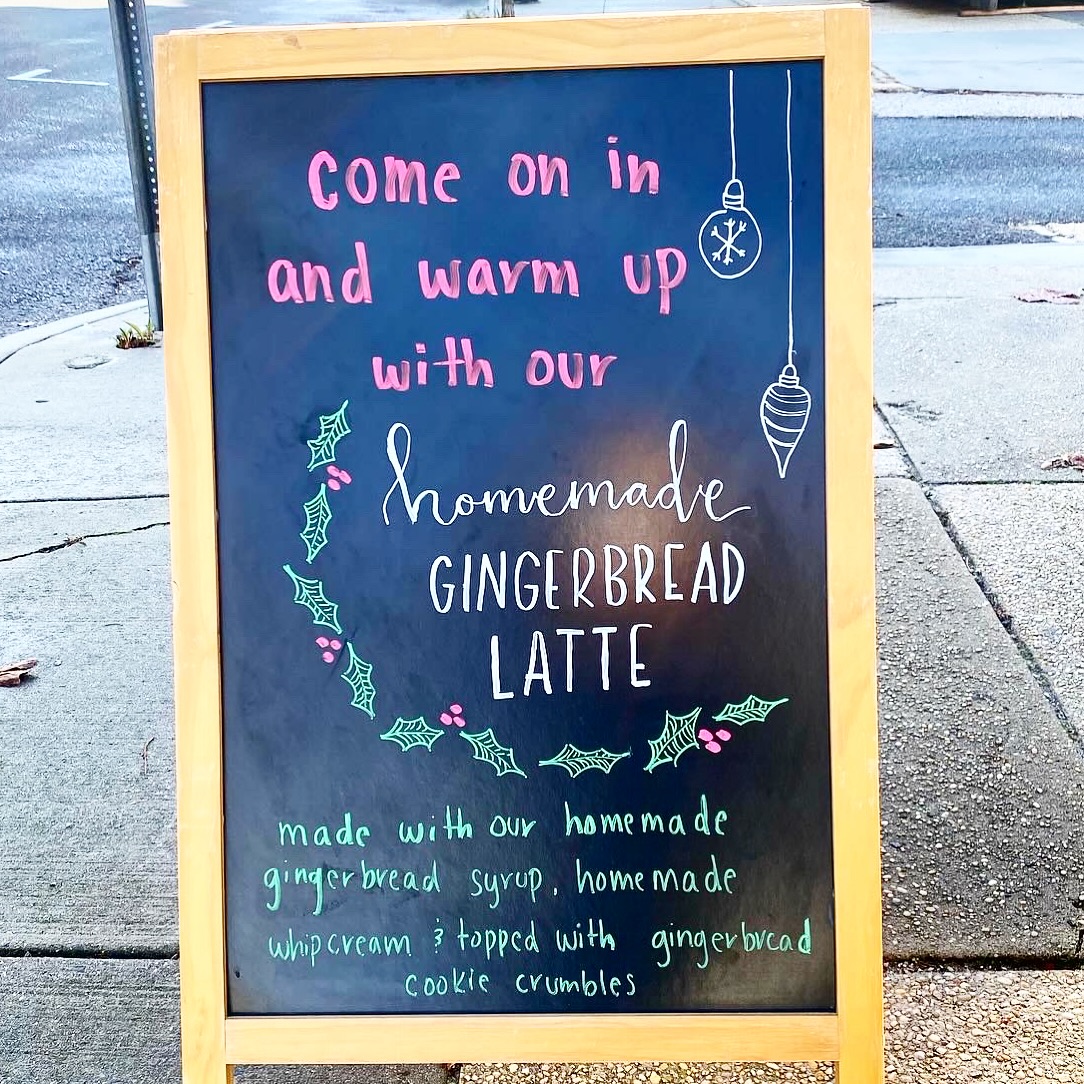 come on in
and warm up
with our
homemade
GINGERBREAD
LATTE
made with our homemade
gingerbread syrup, homemade
whipcream & topped with gingerbread
cookie crumbles